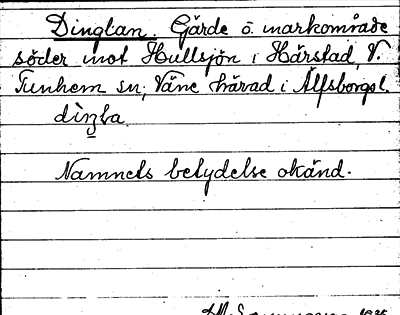 Dinglan. Gärde o. markområde
söder mot Hullsjön i Hårstad, V.
Tunhem sn; Väne härad i Älfsborgs l.
Namnets betydelse okänd.